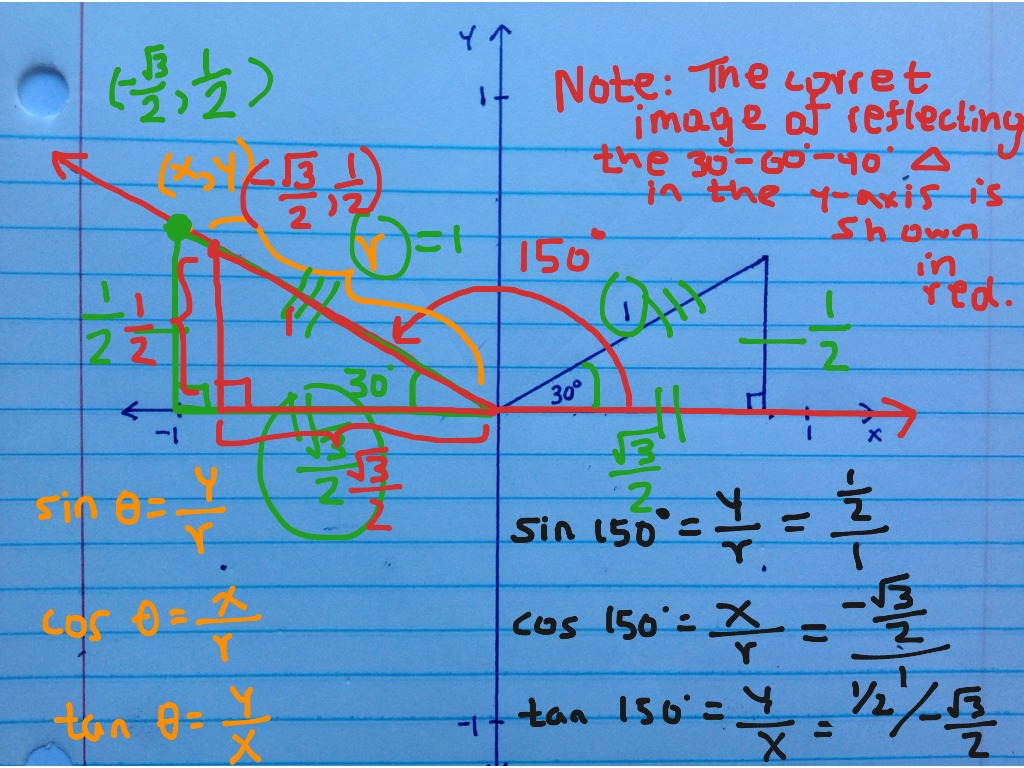 Y
1
(-√3/2, 1/2)
Note: The corret
image of reflecting
the 30°-60°-90° △
in the y-axis is
shown
in
red.
(x,y) (-√3/2, 1/2)
r = 1
150°
1
1
1/2
1/2
1/2
30°
30°
-1
1
x
√3/2
√3/2
√3/2
sin θ = y/r
sin 150° = y/r = 1/2/1
cos θ = x/r
cos 150° = x/r = -√3/2/1
tan θ = y/x
-1
tan 150° = y/x = 1/2/-√3/2